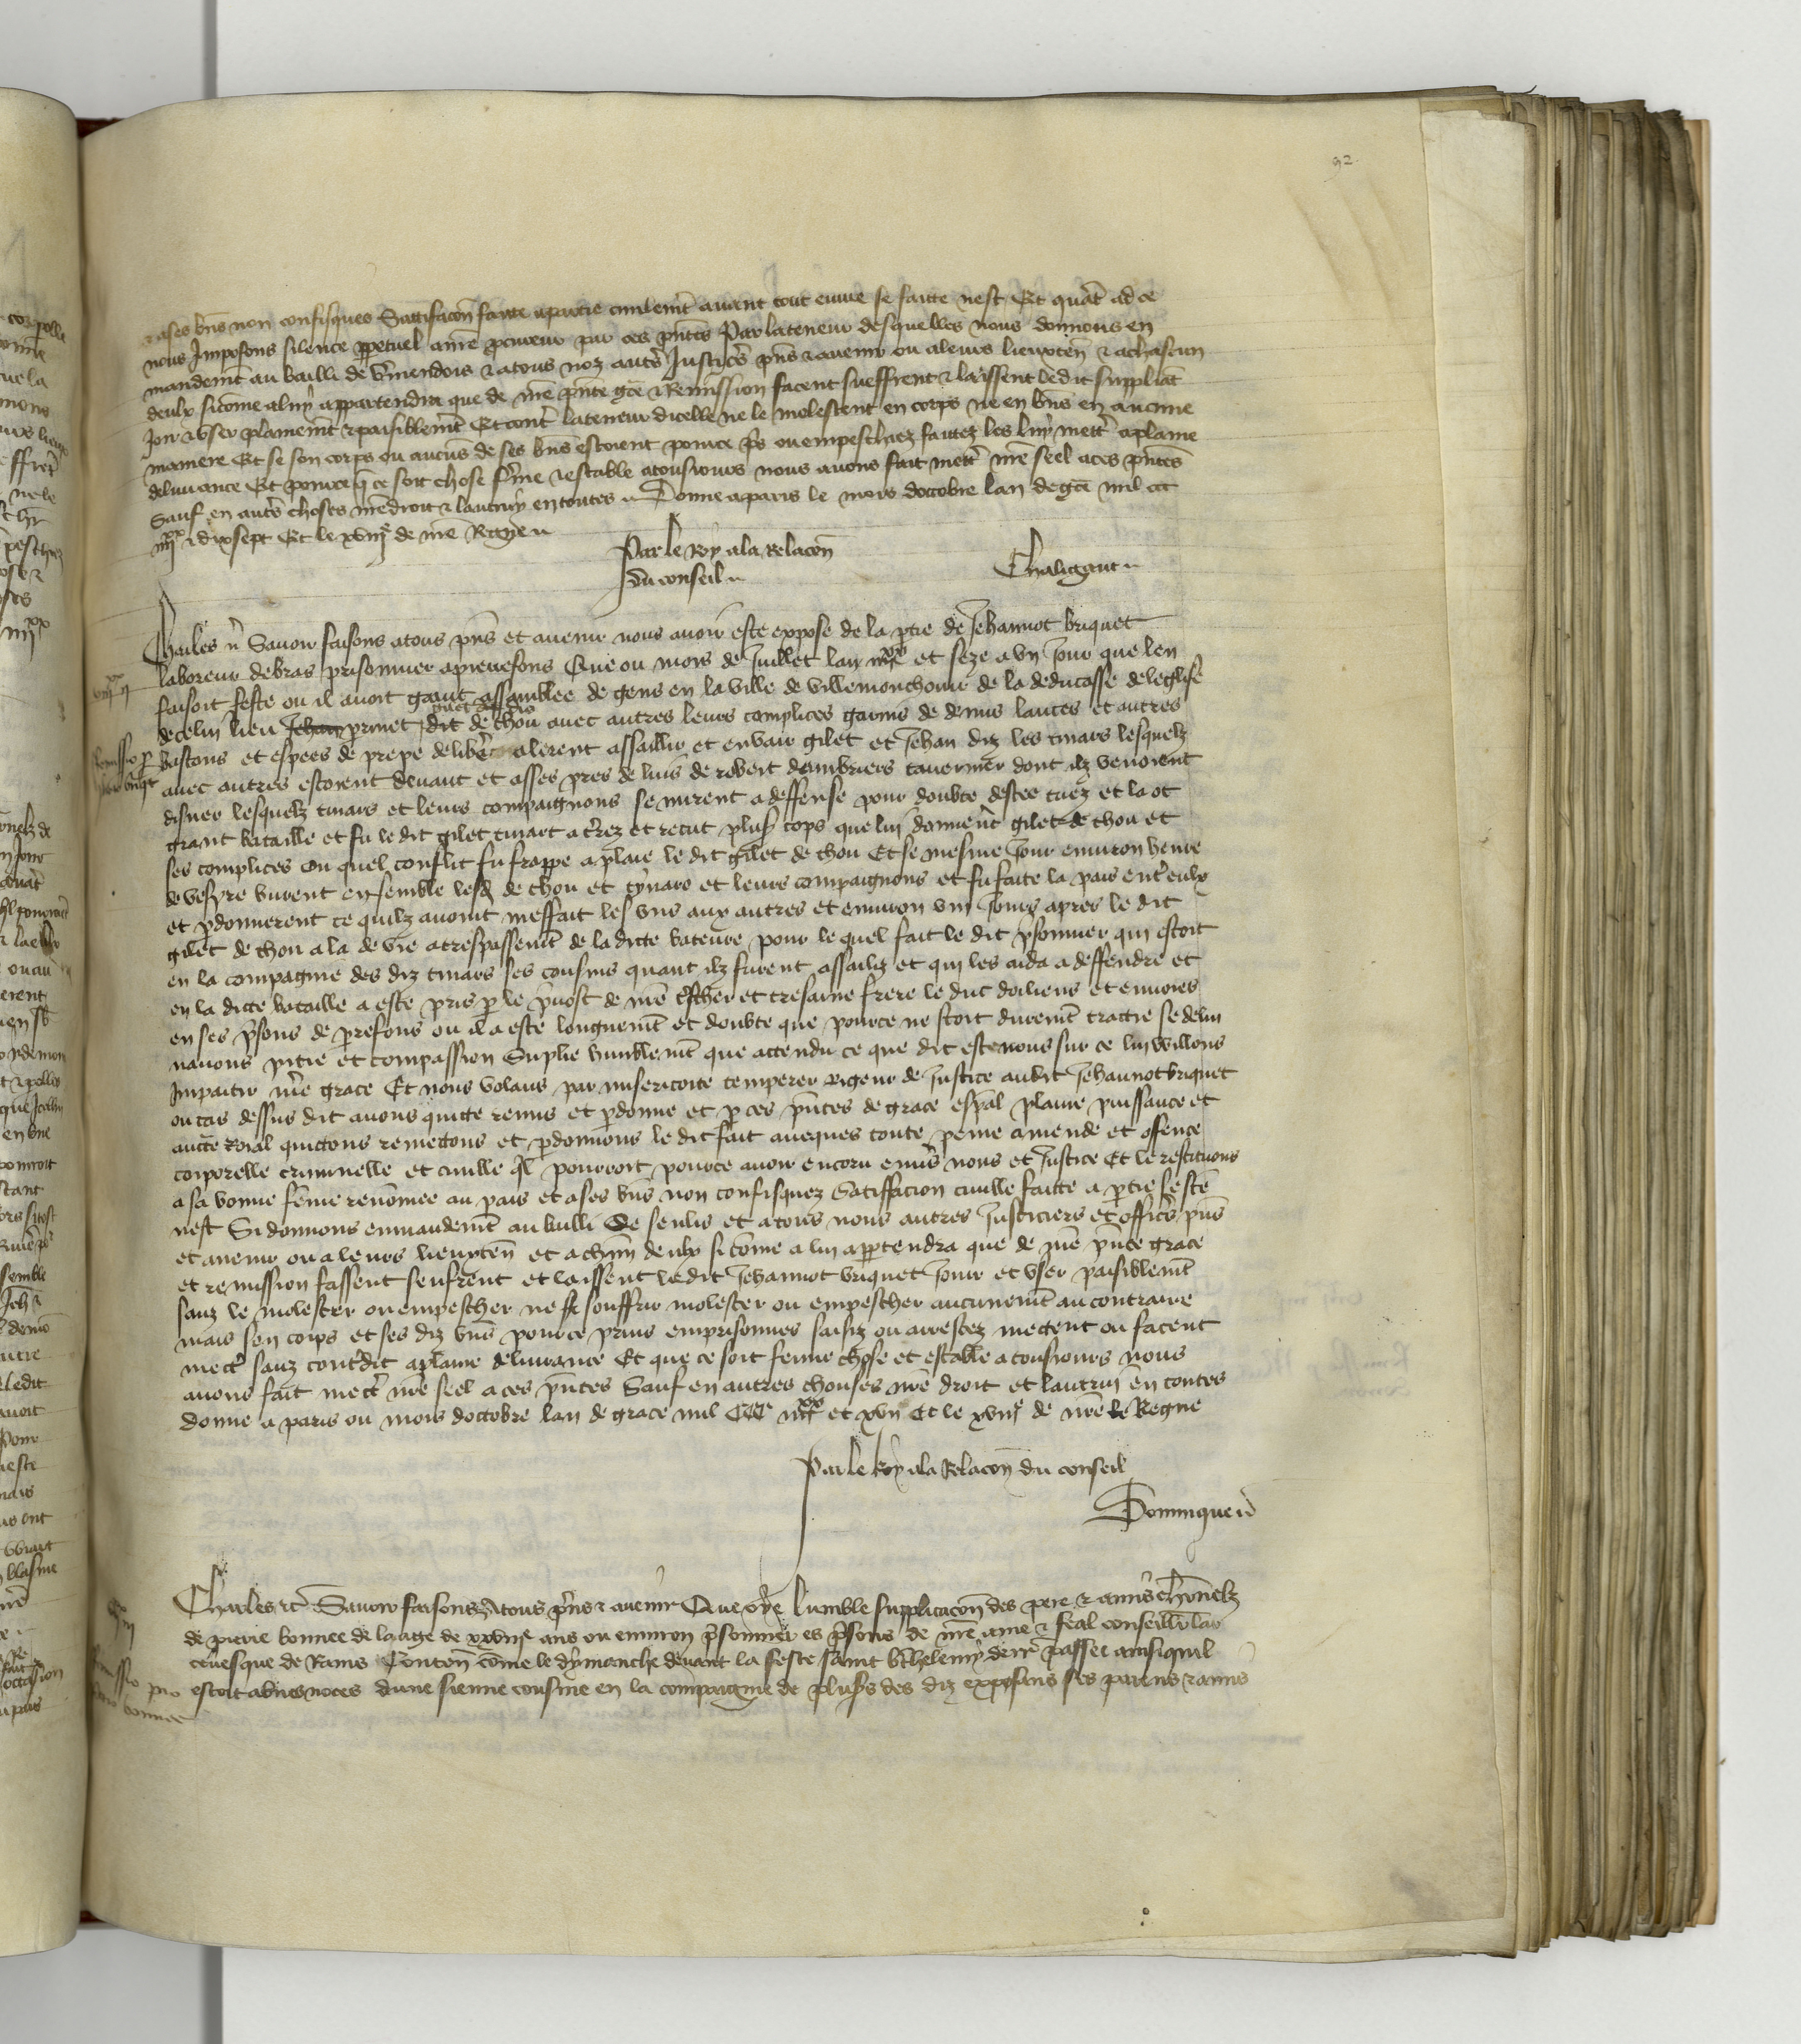 92
a ses bns non confisques Satisfacon faitte a partie civilemt avant tout euvre se faitte nest Et quat ad ce
nous Imposons silence ppetuel a nre procureur par ces pntes Par la teneur desquelles nous donnons en
mandemt au bailli de Vmendois & a tous noz autrs Justices pns & avenir ou a leurs lieuxten & a chascun
deulx sicome a luy appartendra que de nre pnte gce & Remission facent sueffrent & laissent ledit suppliat
Joir & user plainemt & paisiblemt Et contr la teneur dicelle ne le molestent en corps ne en bns en aucune
maniere Et se son corps ou aucuns de ses bns estoient pource ps ou empeschiez faittez les luy mettr a plaine
delivrance Et pource q ce soit chose fme & estable a tousiours nous avons fait mettr nre seel a ces pntes
Sauf en autrs choses nre droit & lautruy en toutes Donne a paris le mois doctobre lan de gce mil ccc
iiijxx & dixsept Et le xviije de nre Regne
Par le Roy a la Relacon
du conseil
Chaligaut
Charles Savoir faisons a tous pns et avenir nous avoir este expose de la ptie de Jehannot briquet
laboreur de bras prisonnier a pierefons Que ou mois de Juillet lan iiijxx et seze a un Jour que len
faisoit feste ou il avoit grant assamblee de gens en la ville de villemonchoire de la deducasse de leglise
de celui lieu Jehan prinet dit de thou avec autres leurs complices garnis de demis lances et autres
bastons et espees de prepe deliber alerent assaillir et envair gilet et Jehan diz les tinars lesquelz
avec autres estoient devant et asses pres de luis de robert tavernier dont ilz venoient
disner lesquelz tinars et leurs compaignons se mirent a deffense pour doubte destre tuez et la ot
grant bataille et fu le dit gilet tinart atrez et recut plus cops que lui donnent gilet de thou et
ses complices Ou quel conflit fu frappe a plaie le dit gilet de thou Et se mesme Jour environ heure
de vespre burent ensemble lesd de thou et tynars et leurs compaignons et fu faite la pais entr eulx
et pdonnerent ce quilz avoint meffait les uns aux autres et environ viij Jours apres le dit
gilet de thou a la de vie a trespassemt de la dicte bateure pour le quel fait le dit psonnier qui estoit
en la compagnie des diz tinars ses cousins quant ilz furent assailiz et qui les aida a deffendre et
en la dicte bataille a este pris p le pvost de nre tscher et tresame frere le duc dorliens et envoies
en ses psons de prefons ou il a este longuemt et doubte que pource ne soit duremt traitie se de lui
navons pitie et compassion Suplie humblemt que attendu ce que dit est nous sur ce lui willons
Impartir nre grace Et nous volans par misericorde temperer Rigeur de Justice audit Jehannot briquet
ou cas dessus dit avons quitte remis et pdonne et p ces pntes de grace espal plaine puissance et
aucte Roial quittons remettons et pdonnons le dit fait aveques toute peine amende et offence
corporelle criminelle et civille ql pourroit pource avoir encoru envs nous et Justice Et le restituons
a sa bonne feme renomee au pais et a ses bns non confisquez Satiffacion civille faitte a ptie se ste
nest Si donnons en mandemt au bailli de senlis et a tous nous autres Justiciers et offics pns
et avenir ou a leurs lieuxten et a chun deulx si come a lui aptendra que de nre pnte grace
et remission fassent seufrent et laissent ledit Jehannot briquet Jouir et user paisiblemt
sanz le molester ou empescher ne souffrir molester ou empescher aucunemt au contraire
mais son corps et ses diz bns pource prins emprisonnes saisiz ou arrestez mettent ou facent
mectr sanz contdit a plaine delivrance Et que ce soit ferme chose et estable a tousiours nous
avons fait mectr nre seel a ces pntes Sauf en autres chouses nre droit et lautrui en toutes
donne a paris ou mois doctobre lan de grace mil CCCe iiijxx et xvij Et le xviije de nre Regne
Par le Roy a la Relacon du conseil
Dominque
Charles etc Savoir faisons A tous pns & avenir Que oye lumble supplicacon des pere & amis charnelz
de pierre bonnee de laage de xxviije ans ou environ psonnier es psons de nre ame & feal conseiller lar
cevesque de Rains Conten come le dymanche devant la feste saint bthelemy derr passee ainsi quil
estoit a unes noces dune sienne cousine en la compaignie de plus des diz exposans ses parens & amis